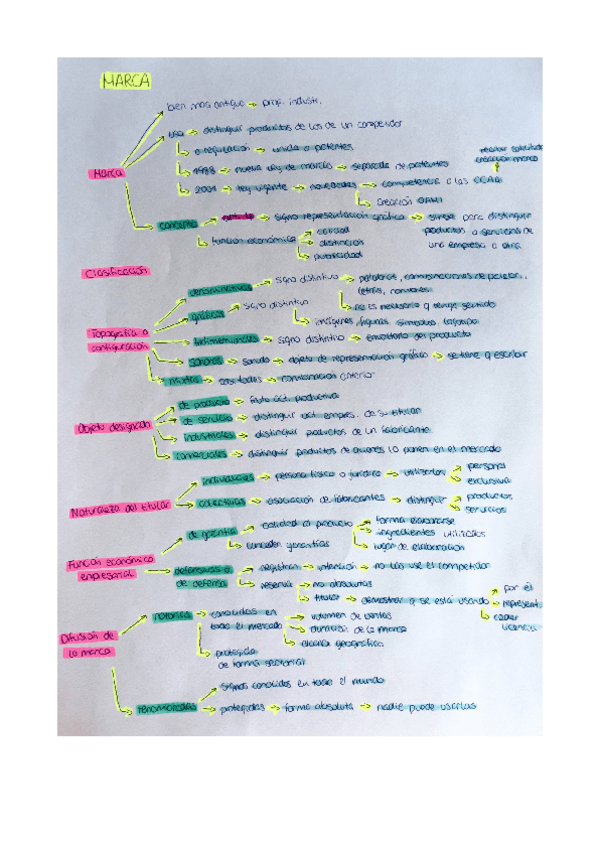 MARCA
bien más antiguo → prop. industr.
uso → distinguir productos de los de un competidor
→ regulación → unida a patentes
Marca
1988 → nueva ley de marcas → separada de patentes
creación marca
2001 → ley vigente → novedades → competencia a las CCAA
creación OAMI
concepto → → signo representación gráfica → sirve para distinguir
productos o servicios de
una empresa a otra
función económica
calidad
distinción
publicidad
Clasificación
denominativas → signo distintivo → palabras, combinaciones de palabr.
letras, números
no es necesario q tenga sentido
gráficas → signo distintivo
→ imágenes, figuras, símbolos, logotipo
Topografía o
configuración
tridimensionales → signo distintivo → envoltorio del producto
sonoras → sonido → objeto de representación gráfica → se tiene q escribir
mixtas → → combinación anterior
de producto → fruto act. productiva
de servicio → distinguir act. empres. de su titular
Objeto designado
industriales → distinguir productos de un fabricante
comerciales → distinguir productos de quienes lo ponen en el mercado
individuales → persona física o jurídica → utilizarlas
personal
exclusiva
Naturaleza del titular
colectivas → asociación de fabricantes → distinguir
productos
servicios
de garantía → calidad al producto
forma elaborarse
ingredientes utilizados
lugar de elaboración
conceden garantías
Función económico
empresarial
defensivas o
de defensa
registran → intención → no las use el competidor
reserva → no absolutas
titular → demostrar q se está usando
por él
represent
ceder
licencia
Difusión de
la marca
notorias → conocidas en
todo el mercado
volumen de ventas
duración de la marca
alcance geográfico
protegida
de forma sectorial
renombradas
signos conocidos en todo el mundo
protegidas → forma absoluta → nadie puede usarlas